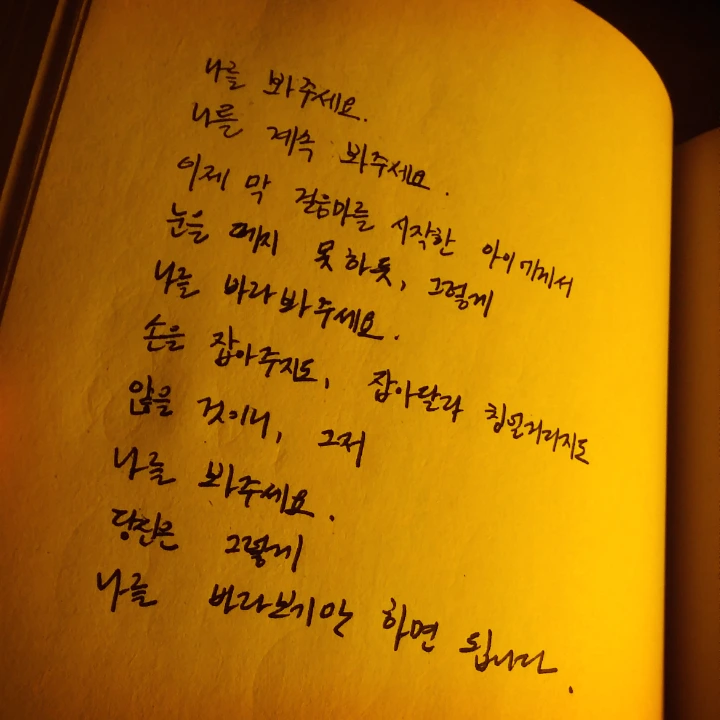 나를 봐주세요.
나를 계속 봐주세요.
이제 막 걸음마를 시작한 아이에게서
눈을 떼지 못하듯, 그렇게
나를 바라봐주세요.
손을 잡아주지도, 잡아달라 칭얼거리지도
않을 것이니, 그저
나를 봐주세요.
당신은 그렇게
나를 바라보기만 하면 됩니다.